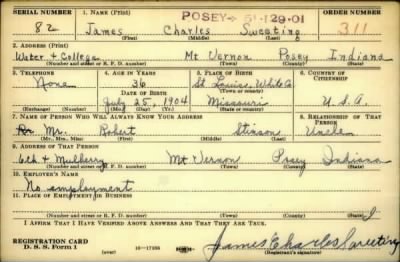 SERIAL NUMBER 1. NAME (Print) POSEY - 5-129-01 ORDER NUMBER
82 James Charles Sweeting 311
(First) (Middle) (Last)
2. ADDRESS (Print)
Water & College Mt Vernon Posey Indiana
(Number and street or R. F. D. number) (Town) (County) (State)
3. TELEPHONE 4. AGE IN YEARS 5. PLACE OF BIRTH 6. COUNTRY OF CITIZENSHIP
None 36 St Louis, White Co
DATE OF BIRTH (Town or county)
July 25, 1904 Missouri U.S.A.
(Exchange) (Number) (Mo.) (Day) (Yr.) (State or country)
7. NAME OF PERSON WHO WILL ALWAYS KNOW YOUR ADDRESS 8. RELATIONSHIP OF THAT PERSON
Mr. Robert Stinson Uncle
(Mr., Mrs., Miss) (First) (Middle) (Last)
9. ADDRESS OF THAT PERSON
6th & Mulberry Mt Vernon Posey Indiana
(Number and street or R. F. D. number) (Town) (County) (State)
10. EMPLOYER'S NAME
No employment
11. PLACE OF EMPLOYMENT OR BUSINESS
(Number and street or R. F. D. number) (Town) (County) (State)
I AFFIRM THAT I HAVE VERIFIED ABOVE ANSWERS AND THAT THEY ARE TRUE.
REGISTRATION CARD
D. S. S. Form 1 (over) James Charles Sweeting
(Registrant's signature)